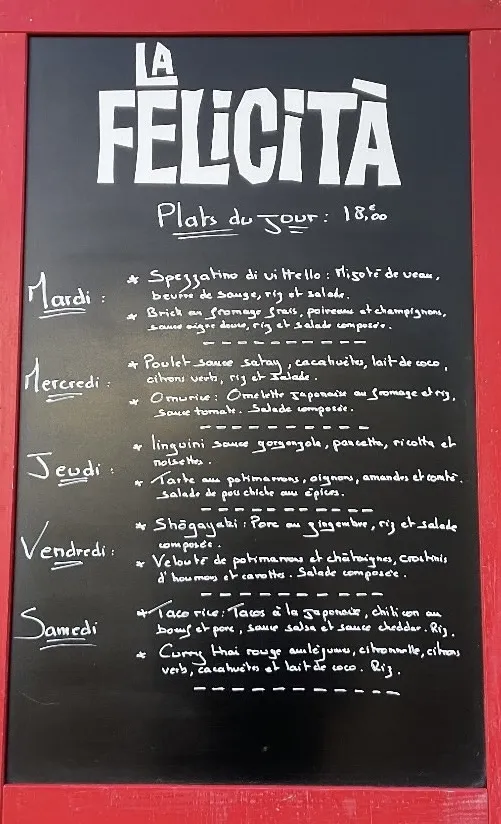 LA
FÉLiCiTÀ
Plats du Jour : 18,€00
Mardi :
* Spezzatino di vittello : Mijoté de veau,
beurre de sauge, riz et salade.
* Brick au fromage frais, poireaux et champignons,
sauce aigre douce, riz et salade composée.
Mercredi :
* Poulet sauce satay, cacahuètes, lait de coco,
citrons verts, riz et salade.
* Omurice : Omelette Japonaise au fromage et riz,
sauce tomate. Salade composée.
Jeudi :
* linguini sauce gorgonzola, pancetta, ricotta et
noisettes.
* Tarte aux potimarrons, oignons, amandes et comté.
Salade de pou chiche aux épices.
Vendredi :
* Shōgayaki : Porc au gingembre, riz et salade
composée.
* Velouté de potimarrons et châtaignes, crostinis
d'houmous et carottes. Salade composée.
Samedi
* Taco rice : Tacos à la japonaise, chili con au
bœuf et porc, sauce salsa et sauce cheddar. Riz.
* Curry thaï rouge aux légumes, citronnelle, citrons
verts, cacahuètes et lait de coco. Riz.